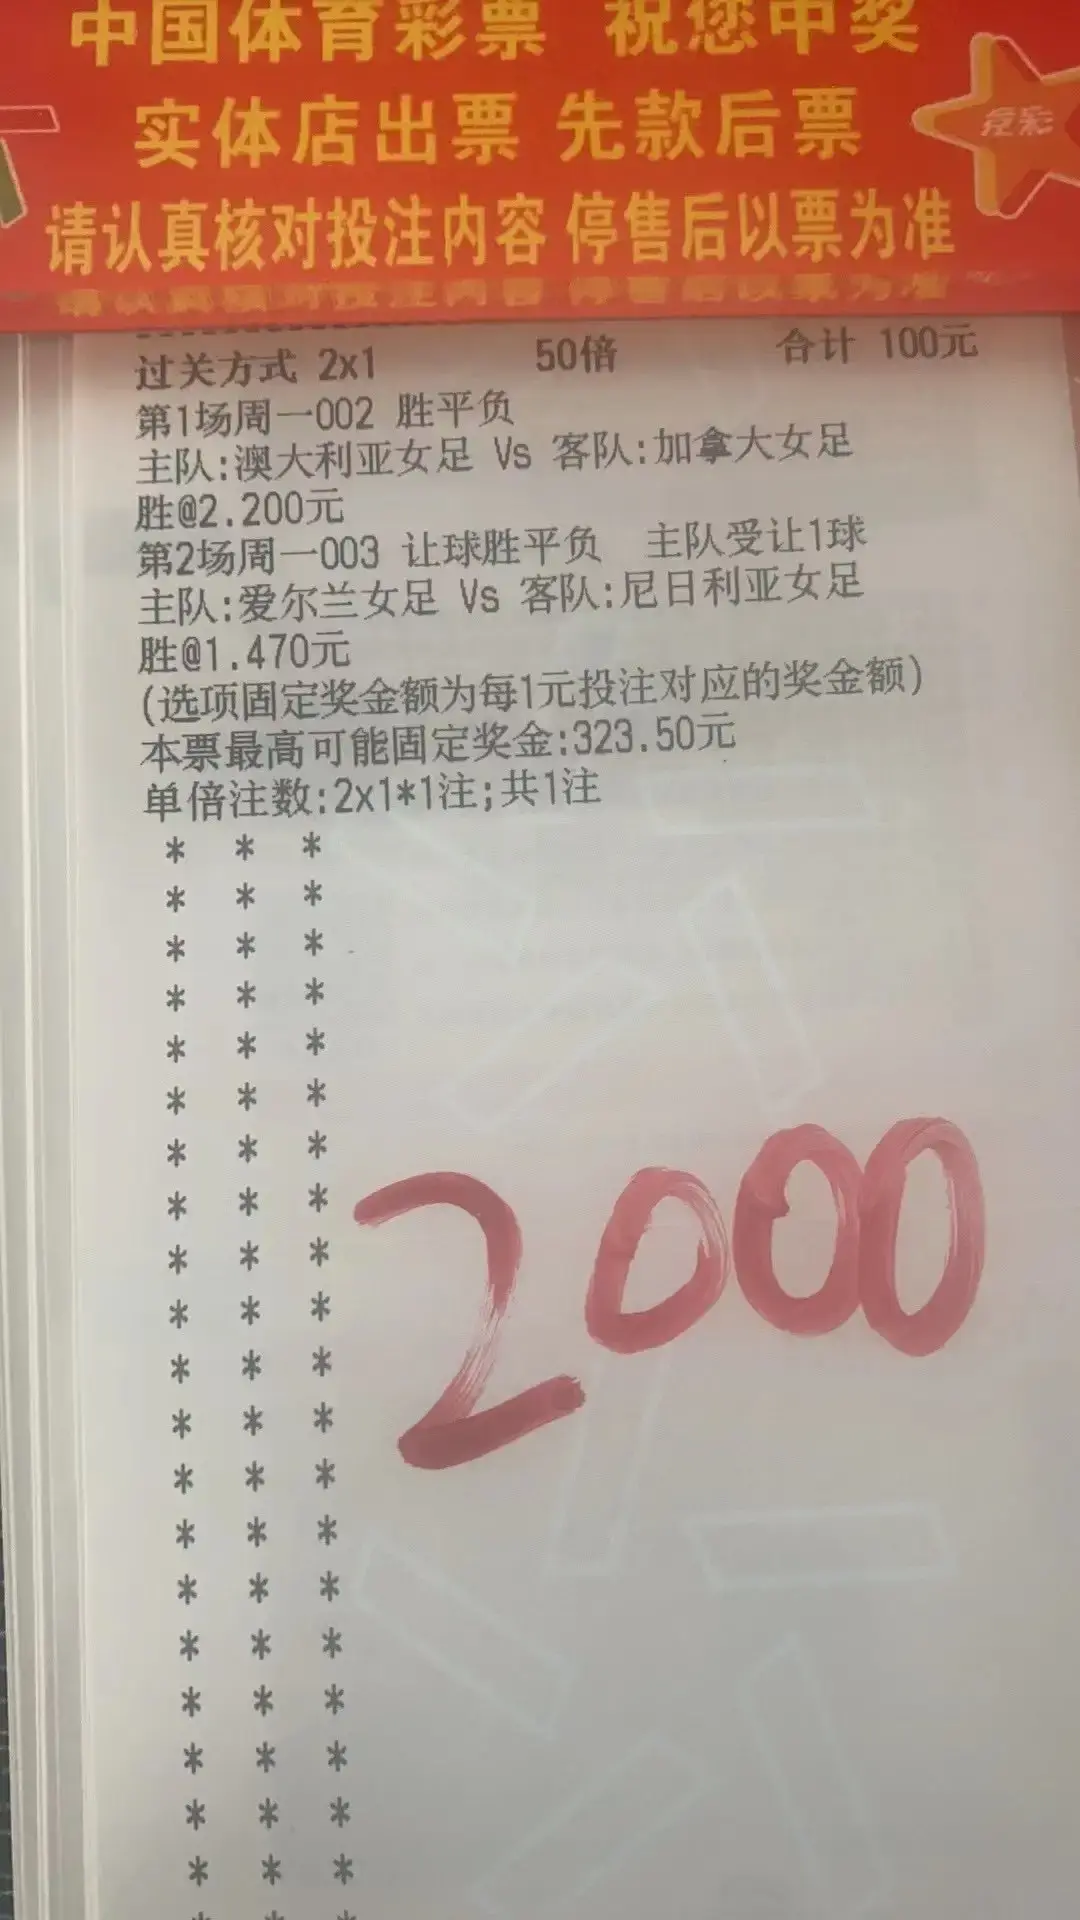 中国体育彩票 祝您中奖
实体店出票 先款后票
竞彩
请认真核对投注内容 停售后以票为准
过关方式 2x1 50倍 合计 100元
第1场周一002 胜平负
主队:澳大利亚女足 Vs 客队:加拿大女足
胜@2.200元
第2场周一003 让球胜平负 主队受让1球
主队:爱尔兰女足 Vs 客队:尼日利亚女足
胜@1.470元
(选项固定奖金额为每1元投注对应的奖金额)
本票最高可能固定奖金:323.50元
单倍注数:2x1*1注;共1注
* * *
* * *
* * *
* * *
* * *
* * *
* * *
* * *
* * *
* * *
* * *
* * *
* * *
* * *
* * *
* * *
* * *
* * *
* * *
* * *
* * *
2000